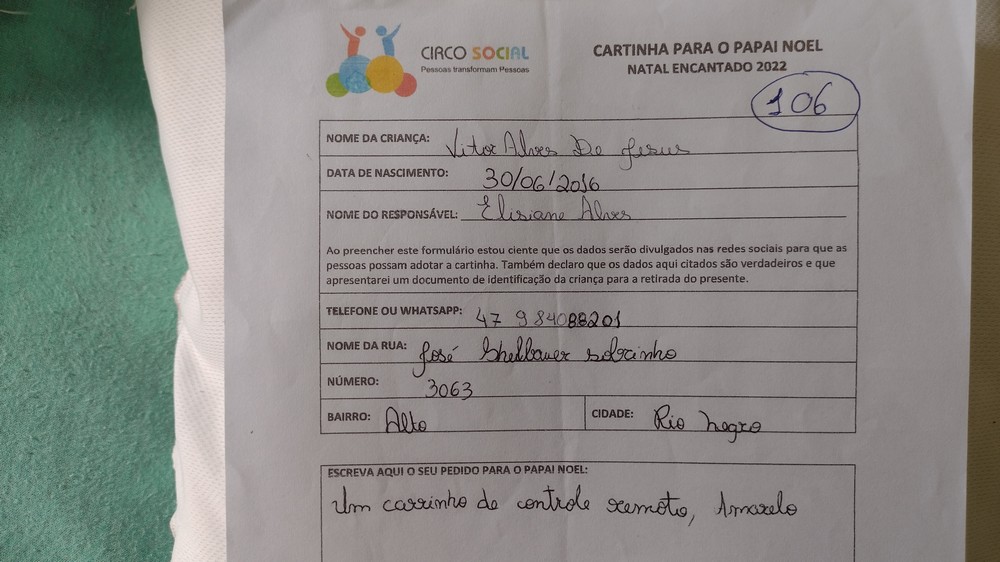 CIRCO SOCIAL
Pessoas transformam Pessoas
CARTINHA PARA O PAPAI NOEL
NATAL ENCANTADO 2022
106
NOME DA CRIANÇA: Vitor Alves De Jesus
DATA DE NASCIMENTO: 30/06/2016
NOME DO RESPONSÁVEL: Elisiane Alves
Ao preencher este formulário estou ciente que os dados serão divulgados nas redes sociais para que as
pessoas possam adotar a cartinha. Também declaro que os dados aqui citados são verdadeiros e que
apresentarei um documento de identificação da criança para a retirada do presente.
TELEFONE OU WHATSAPP: 47 984088201
NOME DA RUA: José Shelbauer sobrinho
NÚMERO: 3063
BAIRRO: Alto CIDADE: Rio negro
ESCREVA AQUI O SEU PEDIDO PARA O PAPAI NOEL:
Um carrinho de controle remoto, Amarelo